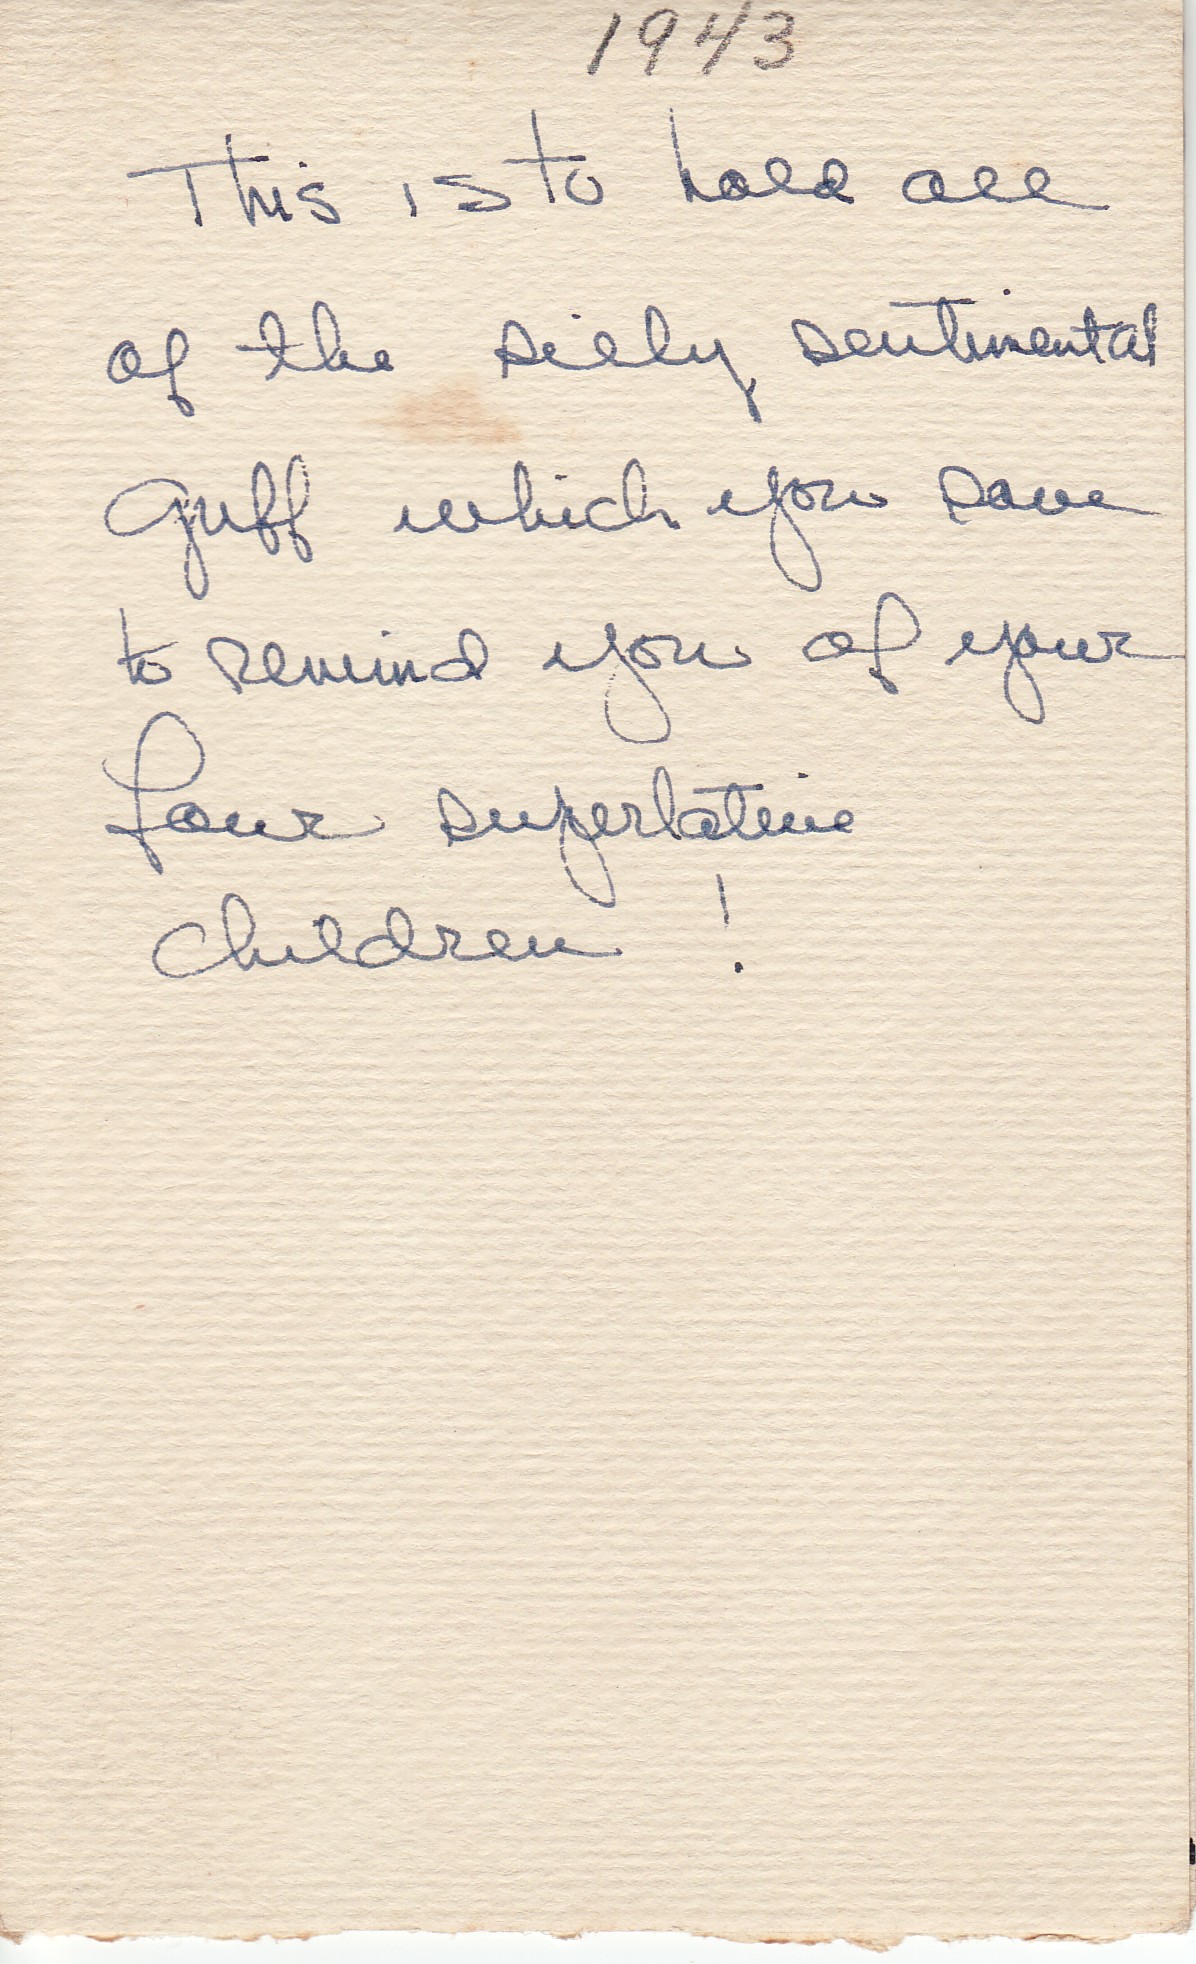 1943
This is to hold all
of the silly sentimental
guff which you save
to remind you of your
four superlative
children !